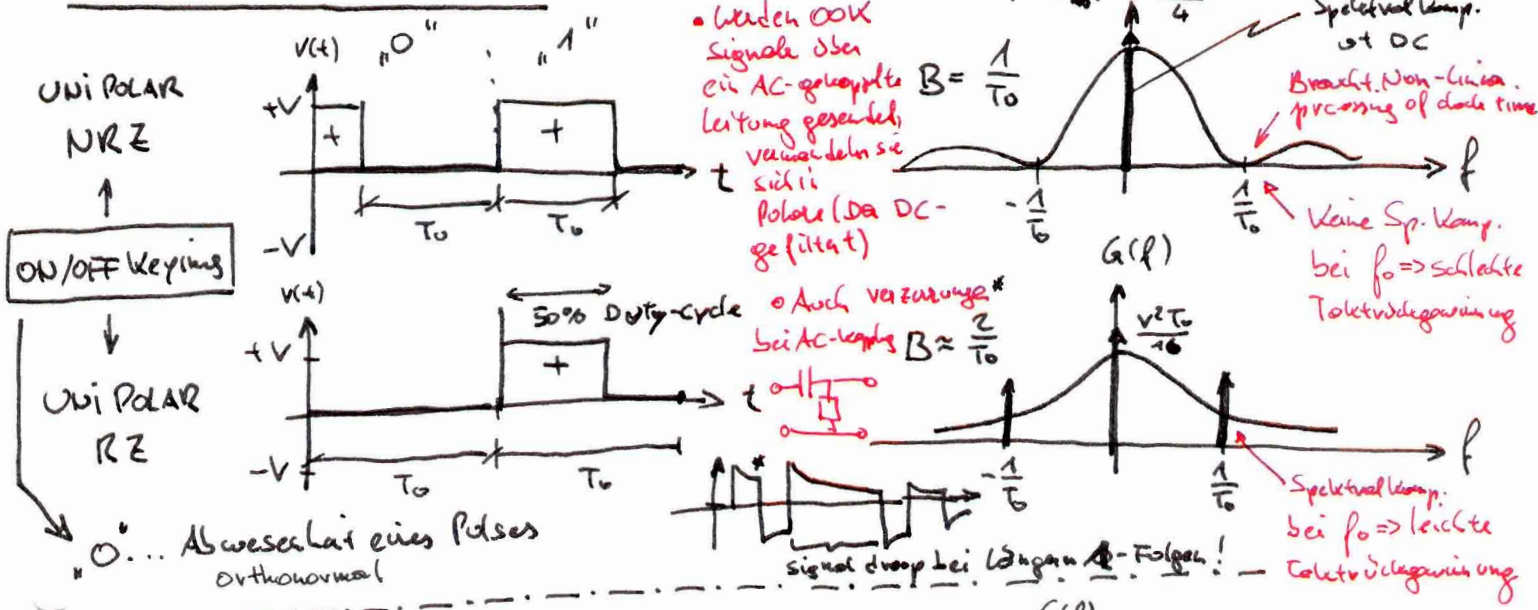 UNIPOLAR
NRZ
ON/OFF Keying
UNIPOLAR
RZ
"0"... Abwesenheit eines Pulses
orthonormal
v(t)
„0“
„1“
+V
+
+
t
T₀
T₀
-V
v(t)
50% Duty-Cycle
+V
+
t
-V
T₀
T₀
• Werden OOK
Signale über
ein AC-gekoppelte
Leitung gesendet,
verwandeln sie
sich in
Polare (Da DC-
gefiltert)
• Auch verzerrungen*
bei AC-kopplung
*
signal droop bei längeren 1-Folgen!
4
B = 1/T₀
Spektral komp.
at DC
Braucht Non-linear
processing of clock time
-1/T₀
1/T₀
f
Keine Sp. Komp.
bei f₀ => schlechte
Taktrückgewinnung
G(f)
V²T₀/16
B ≈ 2/T₀
-1/T₀
1/T₀
f
Spektral komp.
bei f₀ => leichte
Taktrückgewinnung
G(f)